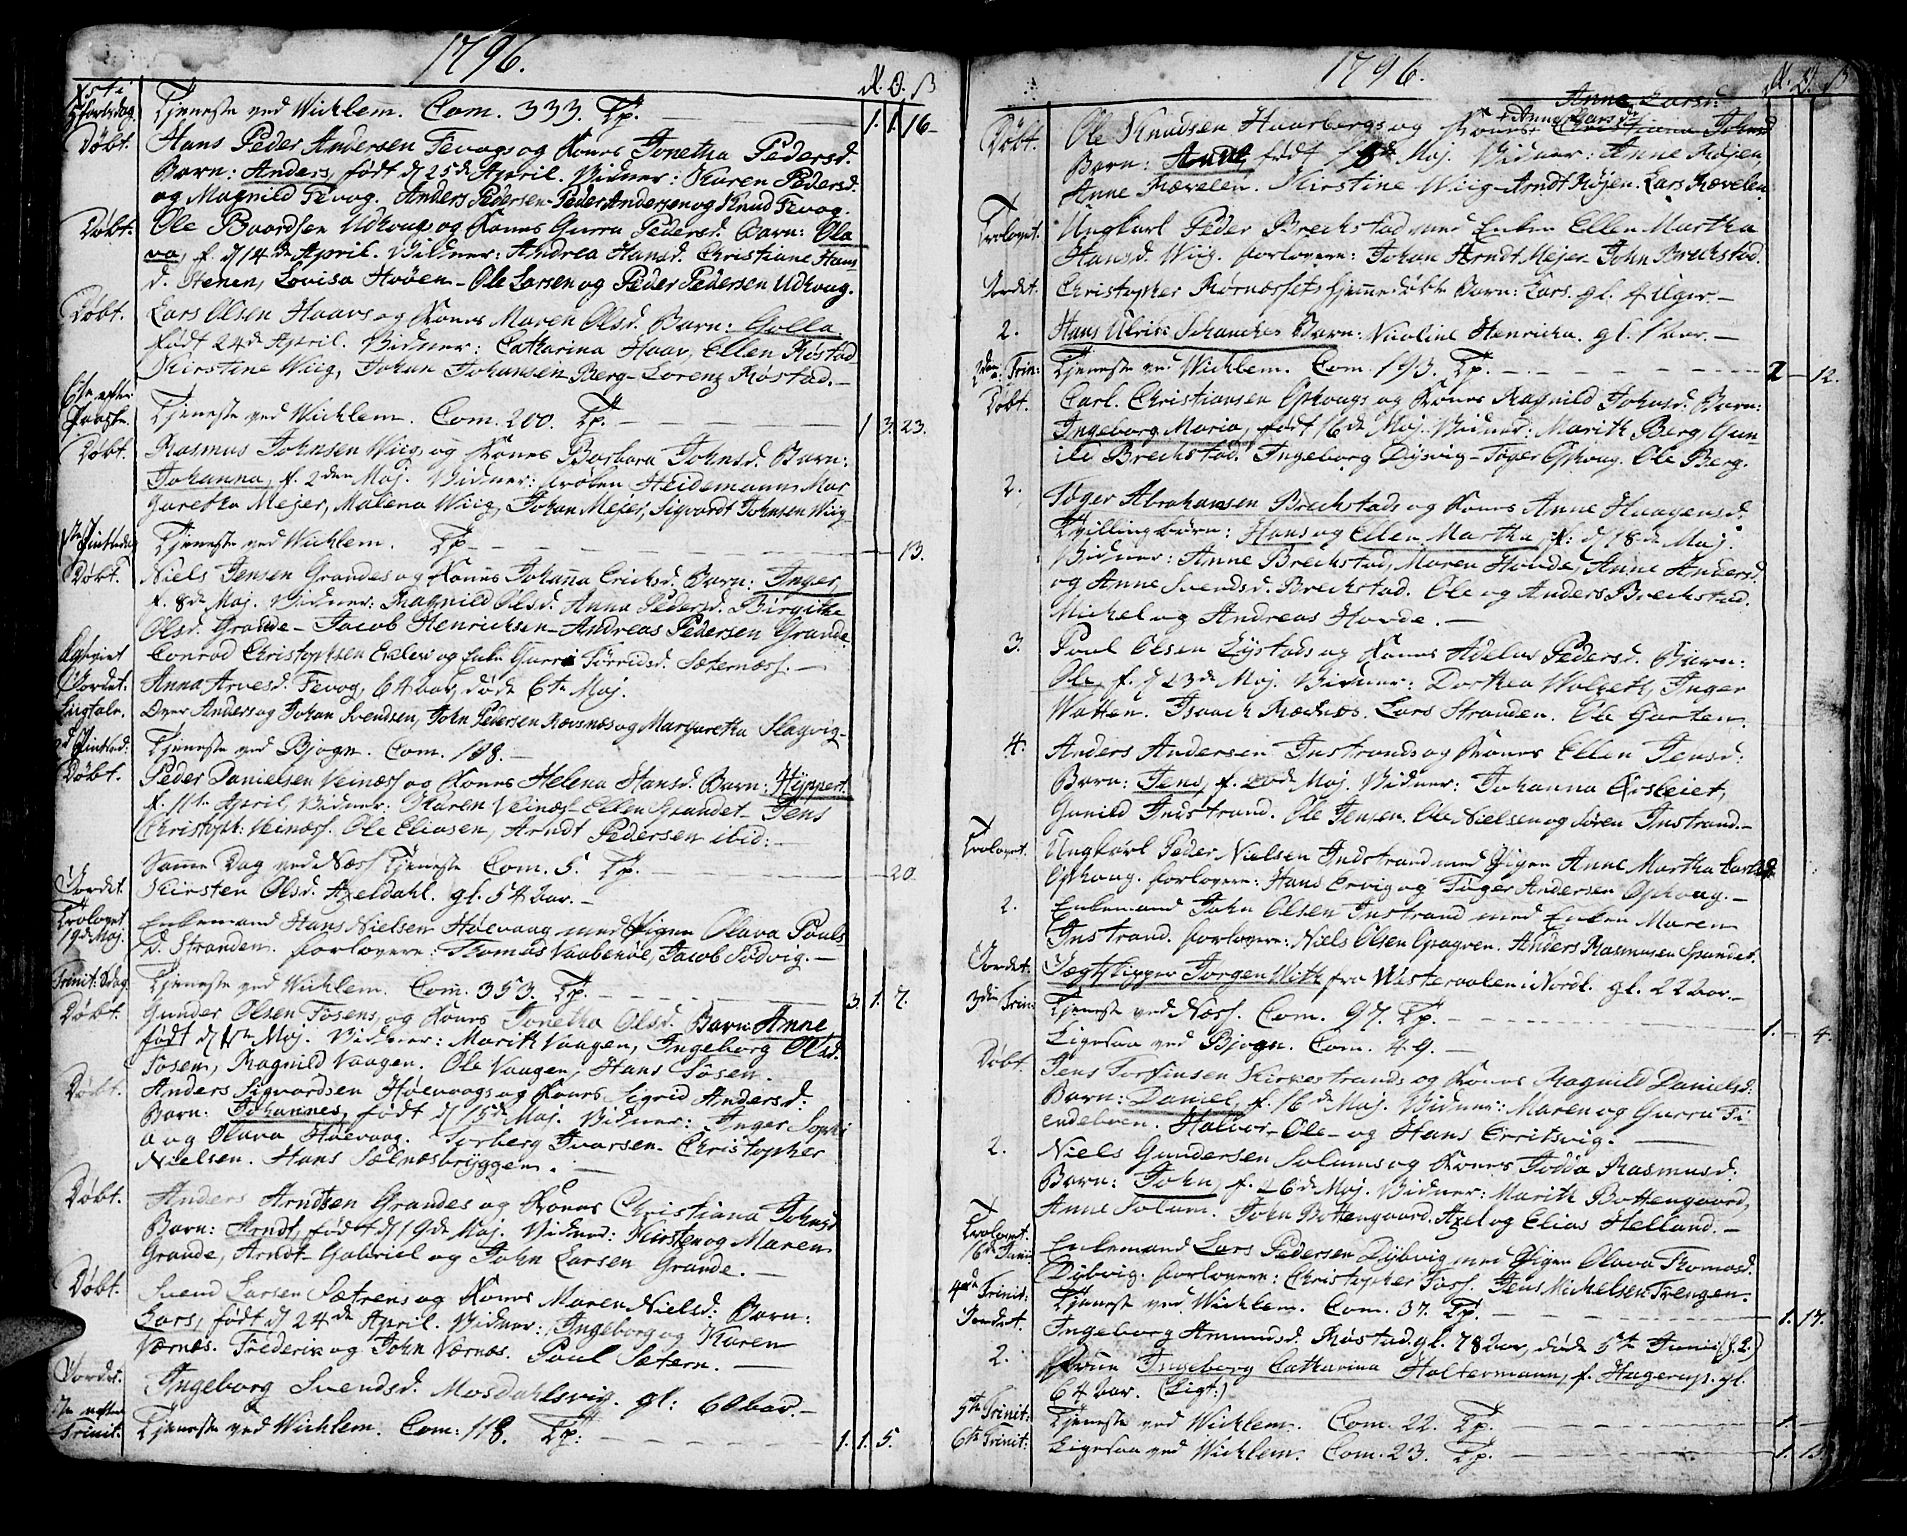 1796.
Rd. O. ß
5te
Forbsdag. Tjeneste ved Wichlem. Com. 333. Tp. 1. 1. 16
Døbt. Hans Peder Andersen Fevogs og Kones Jonetha Pedersd.
Barn: Anders, født d 25de April. Vidner: Karen Pedersd.
og Magnild Fevog. Anders Pedersen Peder Andersen og Knud Fevog.
Døbt. Ole Baardsen Udvaags og Kones Gurra Pedersd. Barn: Ola
va, f. d 14de April. Vidner: Andrea Hansd. Christiane Hans
d. Stenen, Lovisa Hvøen - Ole Larsen og Peder Pedersen Udvaag.
Døbt. Lars Olsen Haavs og Kones Maren Olsd. Barn: Golla
født 24de April. Vidner: Catharina Haav, Ellen Røstad
Kirstine Wiig, Johan Johansen Berg - Lorenz Røstad.
6te efter
Paaske. Tjeneste ved Wichlem. Com. 200. Tp. 1 3. 23.
Døbt. Rasmus Johnsen Wiig og Kones Barbara Johnsd. Barn:
Johanna, f. 2den Maj. Vidner: Frøken Heidemann, Mar
garetha Mejer, Malena Wiig, Johan Mejer, Sigvardt Johnsen Wiig
1ste Pintsedag Tjeneste ved Wichlem. Tp. 13.
Døbt. Niels Jensen Grandes og Kones Johanna Ericksd. Barn: Inger
f. 8de Maj. Vidner: Ragnild Olsd. Anna Pedersd. Birgithe
Olsd. Grande - Jacob Henrichsen - Andreas Pedersen Grande
Conrad Christophsen og Enke Gurri Siørridsd. Sæternæss. -
Jordet. Anna Arvesd. Fevog, 64 Aar, døde 6te Maj.
Ligtale. Over Anders og Johan Svendsen, John Pedersen Rævsnæs og Margaretha Slagvig
2d Pintsed: Tjeneste ved Bjogn. Com. 188. -
Døbt. Peder Danielsen Veinæss og Kones Helena Hansd. Barn: Hyppert
f. 11te April, Vidner: Karen Veinæss Ellen Grandet - Jens
Christoph: Veinæss. Ole Eliasen, Arndt Pedersen ibid: -
Samme Dag ved Næss Tjeneste Com. 5. Tp. 20.
Jordet. Kirsten Olsd. Axeldahl. gl. 54 Aar. -
Trolovet
19de Maj. Enkemand Hans Nielsen Høevaag med Pigen Olava Pouls
d. Stranden. Forlovere: Thomas Vaabenøe, Jacob Sødvig. -
Trinit: Sdag. Tjeneste ved Wichlem. Com. 353. Tp. 3. 1. 7.
Døbt. Gunder Olsen Fosens, og Kones Jonetha Olsd. Barn: Anne
født d 1te Maj. Vidner: Marith Vaagen, Ingeborg Olsd.
Fosen, Ragnild Vaagen. Ole Vaagen, Hans Fosen.
Døbt. Anders Sigvardsen Høevaags og Kones Sigrid Andersd:
Barn: Johannes, født d 15de Maj. Vidner: Inger Sophi
a og Olava Høevaag. Torberg Ivarsen. Christopher
Nielsen. Hans Sælnæsbryggen. -
Døbt. Anders Arndtsen Grandes og Kones Christiana Johnsd
Barn: Arndt, født d 19de Maj. Vidner: Kirsten og Maren
Grande, Arndt - Gabriel og John Larsen Grande. -
Døbt. Svend Larsen Sætrens og Kones Maren Nielsd: Barn:
Lars, født d 24de April. Vidner: Ingeborg og Karen
Værnæs. Frederik og John Værnæs. Poul Sætern. -
Jordet. Ingeborg Svendsd. Mosdahlsvig. gl: 60 Aar. -
1te efter
Trinit: Tjeneste ved Wichlem. Com: 118. Tp: 1. 1. 5.
1796.
Rd. O. ß
Anne Larsd:
Anne Larsd
Døbt. Ole Knudsen Haarbergs og Kones Christiana Johnsd
Barn: Arndt født 18de Maj. Vidner: Anne Røjen,
Anne Rævelen. Kirstine Wiig - Arndt Røjen. Lars Rævelen
Trolovet. Ungkarl Peder Breckstad med Enken Ellen Martha
Hansd. Wiig. Forlovere: Johan Arndt Mejer - John Breckstad.
Jordet. Christopher Rørnæssets hjemmedøbte Barn: Lars. gl. 4 Uger -
2. Hans Ulrik Schanches Barn: Nicoline Henricka. gl. 1 Aar. -
2den Trin: Tjeneste ved Wichlem. Com. 193. Tp. - 2 - 12.
Døbt. Carl Christiansen Ophaugs og Kones Ragnild Johnsd. Barn:
Ingeborg Maria, født 16de Maj. Vidner: Marith Berg, Gun
ild Breckstad. Ingeborg Dysvig - Tøger Ophaug. Ole Berg.
2. Tøger Abrahamsen Breckstads og Kones Anne Haagensd.
Tvillingbørn: Hans og Ellen Martha, f. d 18de Maj.
Vidner: Anne Breckstad, Maren Hovde, Anne Andersd
og Anne Svendsd. Breckstad. Ole og Anders Breckstad.
Michel og Andreas Hovde. -
3. Poul Olsen Lystads og Kones Adelus Pedersd. Barn:
Ole, f. d 23de Maj. Vidner: Dorthea Wolseth, Inger
Watten. Isaach Rædnes. Lars Stranden. Ole Garten.
4. Anders Andersen Instrands og Kones Ellen Jensd:
Barn: Jens, f. 20de Maj. Vidner: Johanna Ørsleiet,
Gunild Indstrand. Ole Jensen. Ole Nielsen og Søren Instrand. -
Trolovet. Ungkarl Peder Nielsen Indstrand med Pigen Anne Martha Larsd.
Ophaug. Forlovere: Hans Ervig og Tøger Andersen Ophaug. -
2. Enkemand John Olsen Instrand med Enken Maren
Instrand. Forlovere: Niels Olsen Opagren. Anders Rasmusen Grandet.
Jordet. Jægtskipper Jørgen With fra Westeraalen i Nordl. gl. 22 Aar. -
3die Trin: Tjeneste ved Næss. Com. 97. Tp. - 1. - 4.
Ligesaa ved Bjogn. Com. 49. -
Døbt. Jens Torfinsen Kirkestrands og Kones Ragnild Danielsd.
Barn: Daniel, f. 16de Maj. Vidner: Maren og Gurru Ti
endeboen. Halvor - Ole - og Hans Erritsvig. -
2. Niels Gundersen Solums og Kones Jødda Rasmusd:
Barn: John, f. 26de Maj. Vidner: Marith Bottengaard,
Anne Solum. John Bottengaard. Axel og Elias Helland. -
Trolovet
6te Junii Enkemand Lars Pedersen Dybvig med Pigen Olava Thomasd.
Dybvig. Forlovere: Christopher Foss. Jens Michelsen Trengen.
4de Trinit: Tjeneste ved Wichlem. Com. 37. Tp. - 1. 17.
Jordet. Ingeborg Amundsd. Røstad, gl. 78 Aar, døde 5te Junii (J. L.)
2. Frue Ingeborg Catharina Holtermann, f. Hagerup. gl.
64 Aar. (Ligt:)
5te Trinit: Tjeneste ved Wichlem. Com. 22. Tp. - 1. -
6te Trinit: Ligesaa ved Wichlem. Com. 23. Tp. - 1. 13.